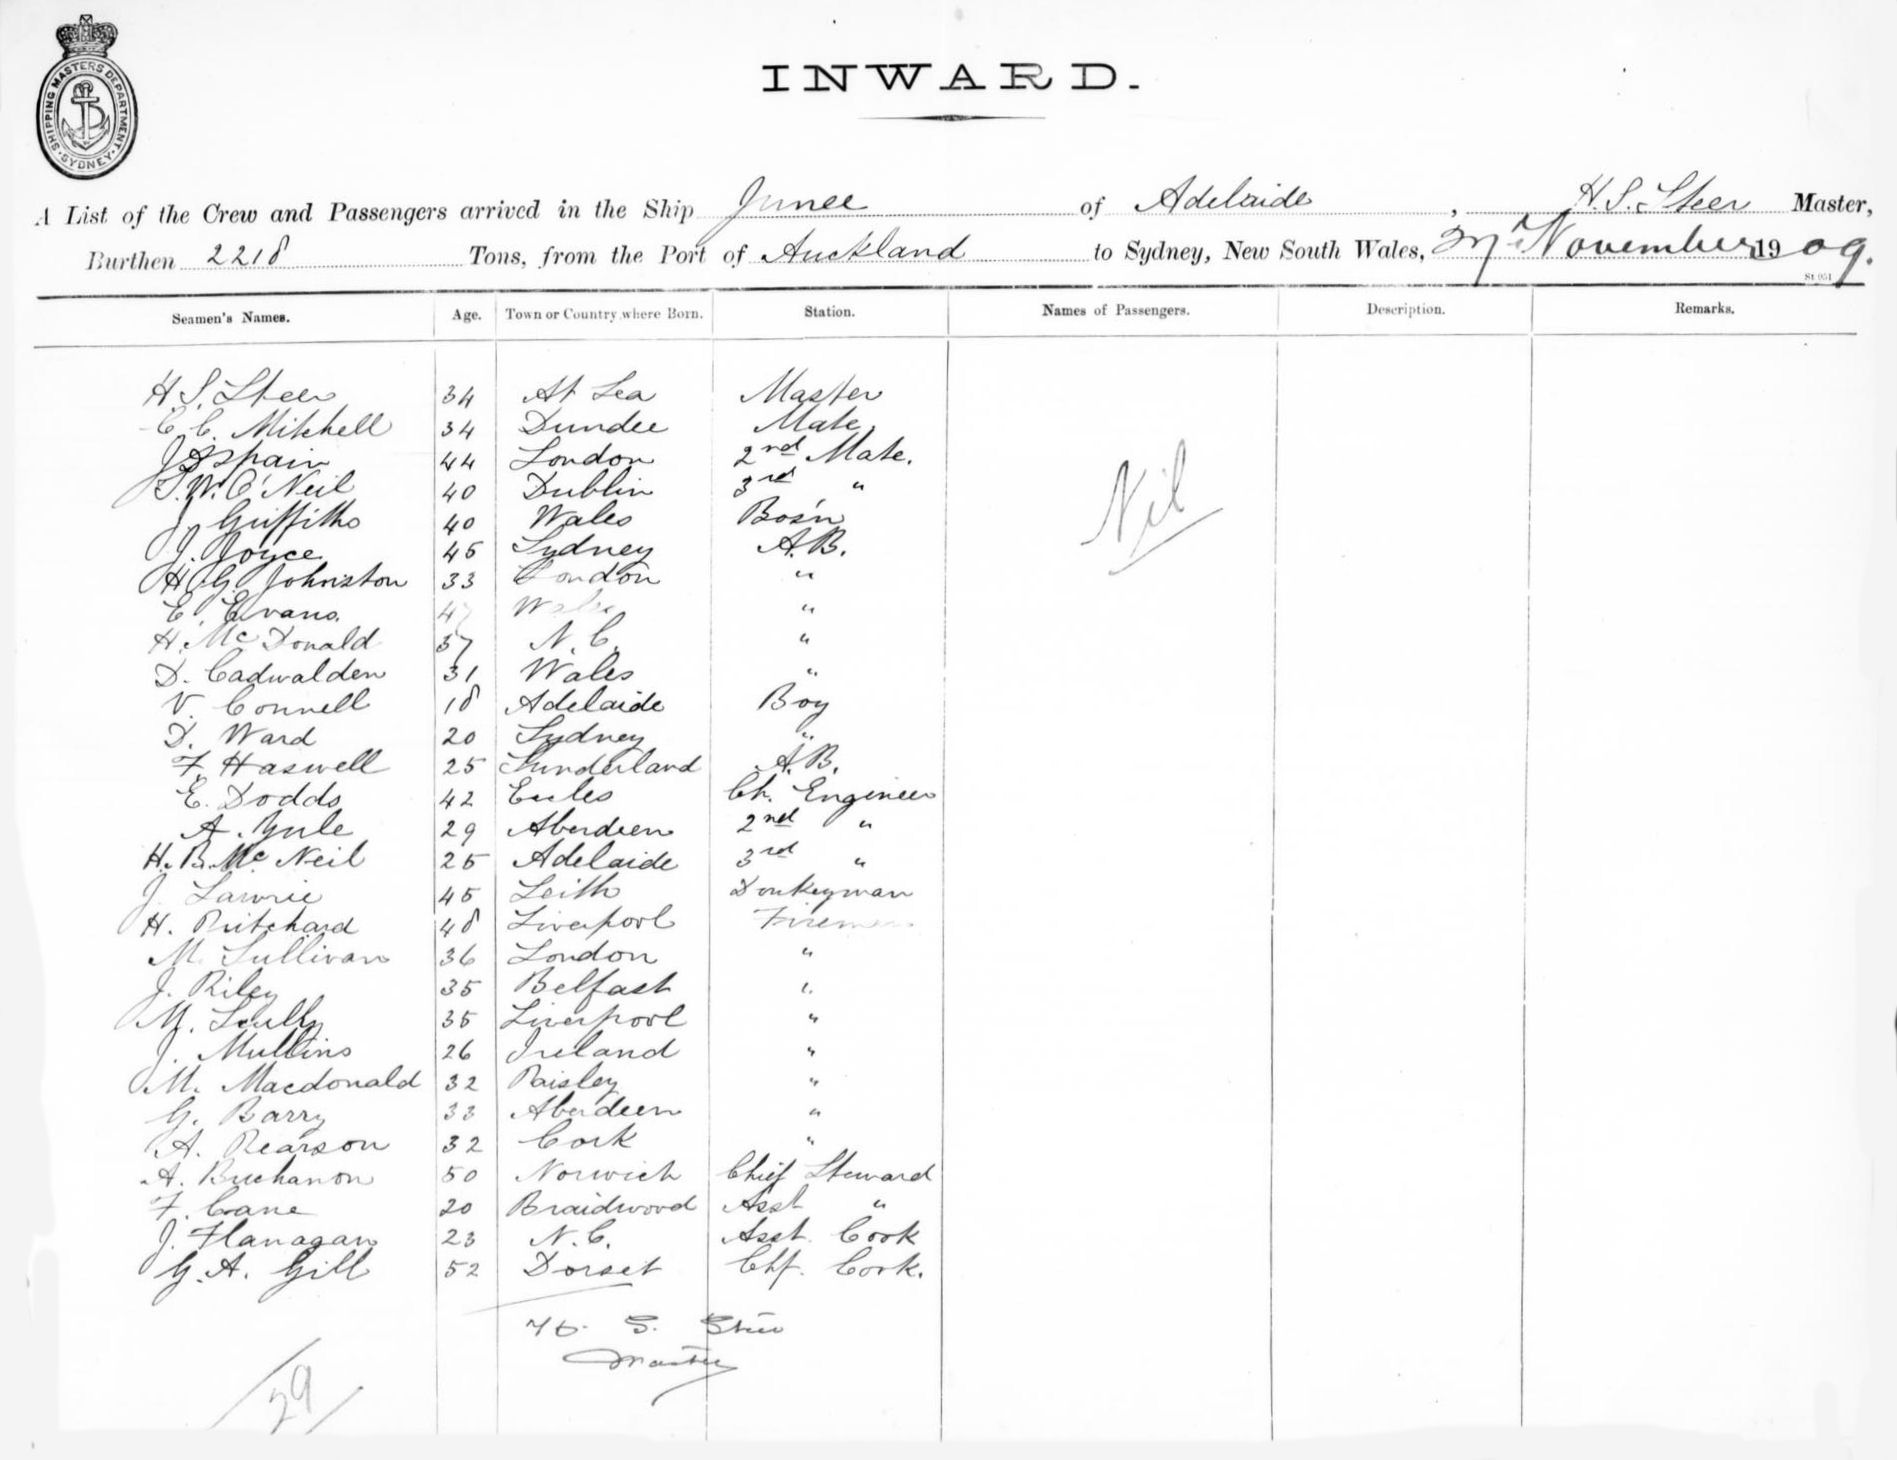 SHIPPING MASTERS DEPARTMENT · SYDNEY ·
INWARD.
A List of the Crew and Passengers arrived in the Ship Junee of Adelaide, H. S. Steer Master,
Burthen 2218 Tons, from the Port of Auckland to Sydney, New South Wales, November 1909.
St 951
Seamen's Names. Age. Town or Country where Born. Station. Names of Passengers. Description. Remarks.
H. S. Steer 34 At Sea Master
C. C. Mitchell 34 Dundee Mate
J Spain 44 London 2nd Mate.
W. O'Neil 40 Dublin 3rd "
J. Griffiths 40 Wales Bos'n
J. Joyce 45 Sydney A.B.
H. G. Johnston 33 London "
E. Evans. Wales "
H. McDonald 37 N. C. "
D. Cadwalden 31 Wales "
V. Connell 18 Adelaide Boy
D. Ward 20 Sydney "
F. Haswell 25 Sunderland A.B.
E. Dodds 42 Eccles Ch. Engineer
A. Yule 29 Aberdeen 2nd "
H. B. McNeil 25 Adelaide 3rd "
J. Lawrie 45 Leith Donkeyman
H. Pritchard 48 Liverpool Firemen
M. Sullivan 36 London "
J. Riley 35 Belfast "
M. Scully 35 Liverpool "
J. Mullins 26 Ireland "
M. Macdonald 32 Paisley "
G. Barry 33 Aberdeen "
A. Pearson 32 Cork "
A. Buchanon 50 Norwich Chief Steward
F. Cane 20 Braidwood Asst "
J. Flanagan 23 N. C. Asst. Cook
G. A. Gill 52 Dorset Chf. Cook.
Nil
H. S. Steer
Master
29